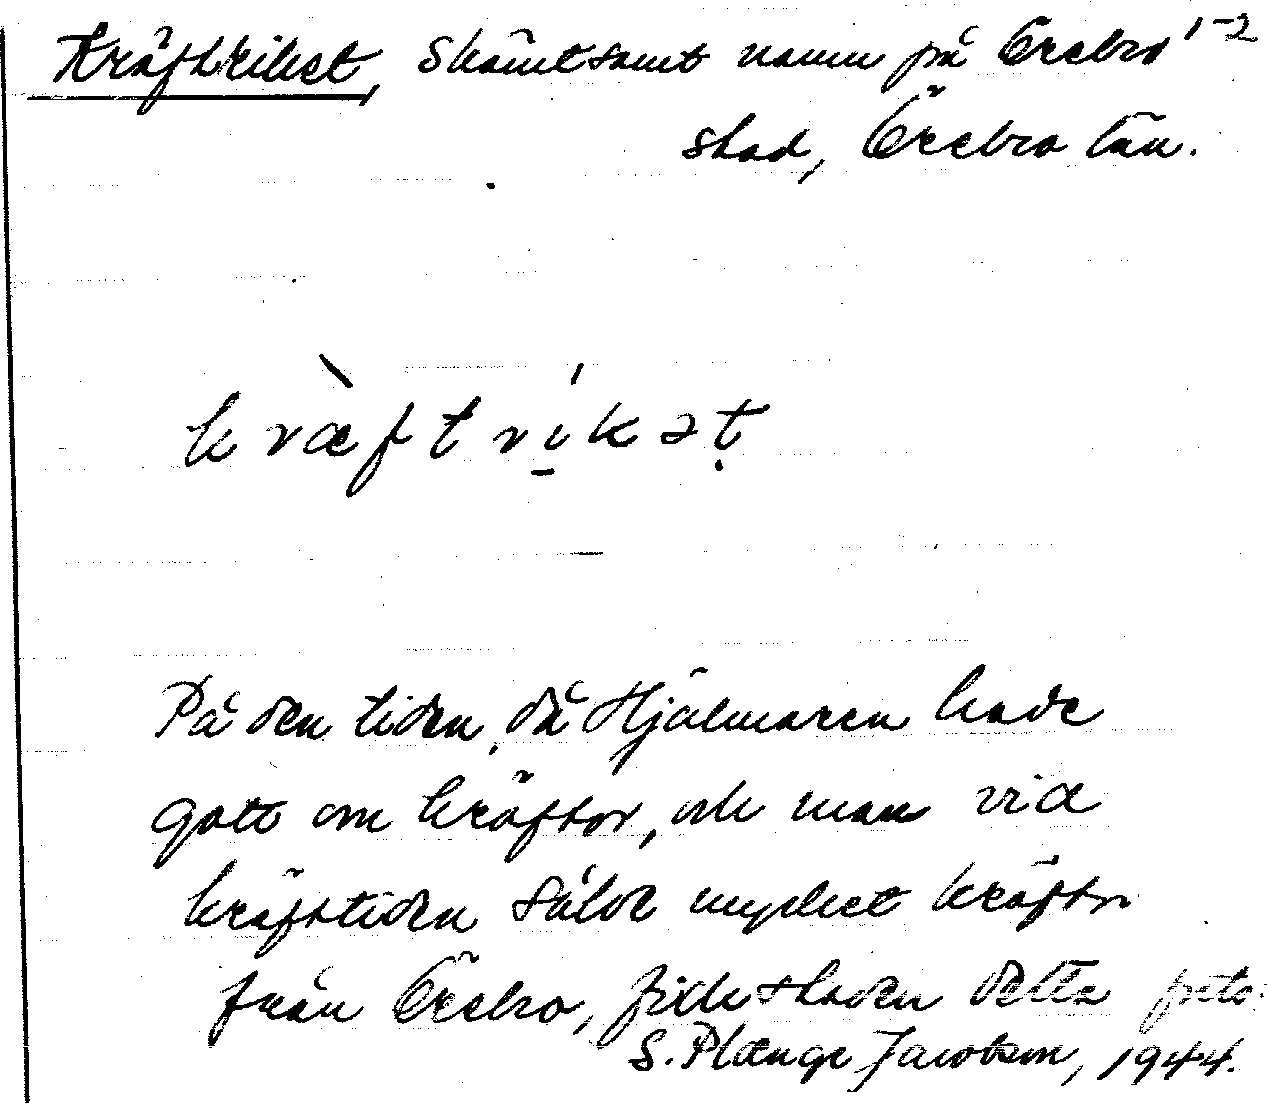 Kräftriket, Skämtsamt namn på Örebro 1-2
stad, Örebro län.
kræ̀ftrі̱́kəṭ
På den tiden, då Hjälmaren hade
gott om kräftor, och man vid
kräfttiden sålde mycket kräftor
från Örebro, fick staden detta
S. Plænge Jacobson, 1944.